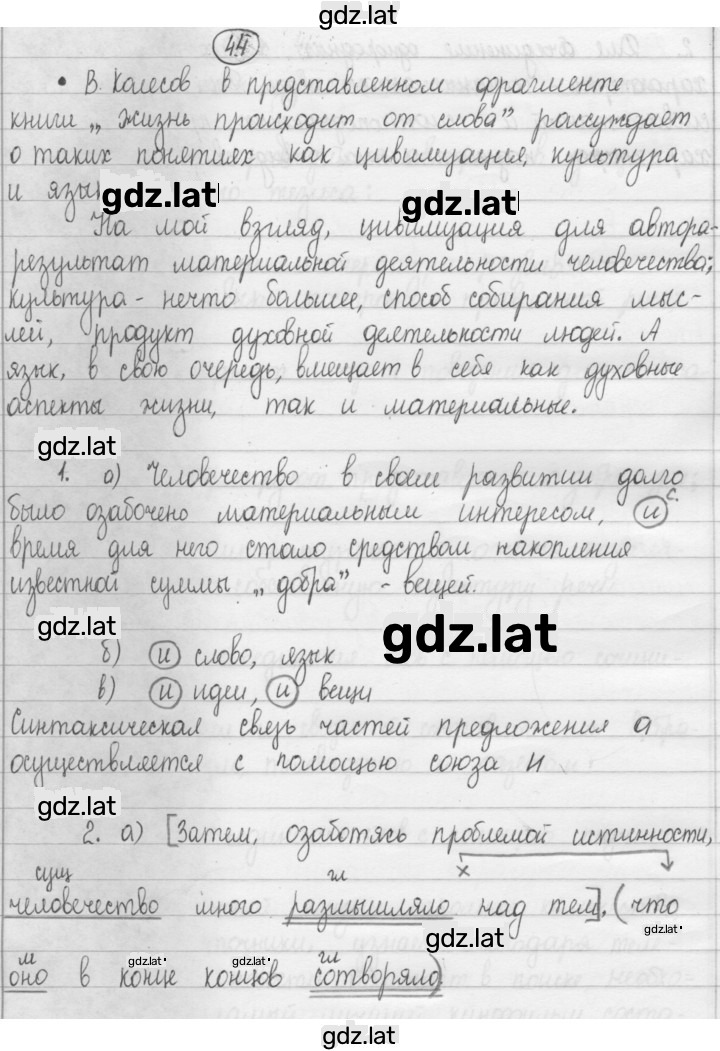 gdz.lat
44
• В. Колесов в представленном фрагменте
книги „Жизнь происходит от слова" рассуждает
о таких понятиях как цивилизация, культура
и язык
gdz.lat gdz.lat
На мой взгляд, цивилизация для автора-
результат материальной деятельности человечества;
культура - нечто большее, способ собирания мыс-
лей, продукт духовной деятельности людей. А
язык, в свою очередь, вмещает в себя как духовные
аспекты жизни, так и материальные.
gdz.lat
1. а) Человечество в своем развитии долго
было озабочено материальным интересом, и с.
время для него стало средством накопления
известной суммы „добра" - вещей.
gdz.lat gdz.lat
б) и слово, язык
в) и идеи, и вещи
Синтаксическая связь частей предложения а
осуществляется с помощью союза и
gdz.lat
2. а) [Затем, озаботясь проблемой истинности,
сущ х гл
человечество много размышляло над тем], (что
gdz.lat
м gdz.lat gdz.lat гл
оно в конце концов сотворяло)
gdz.lat